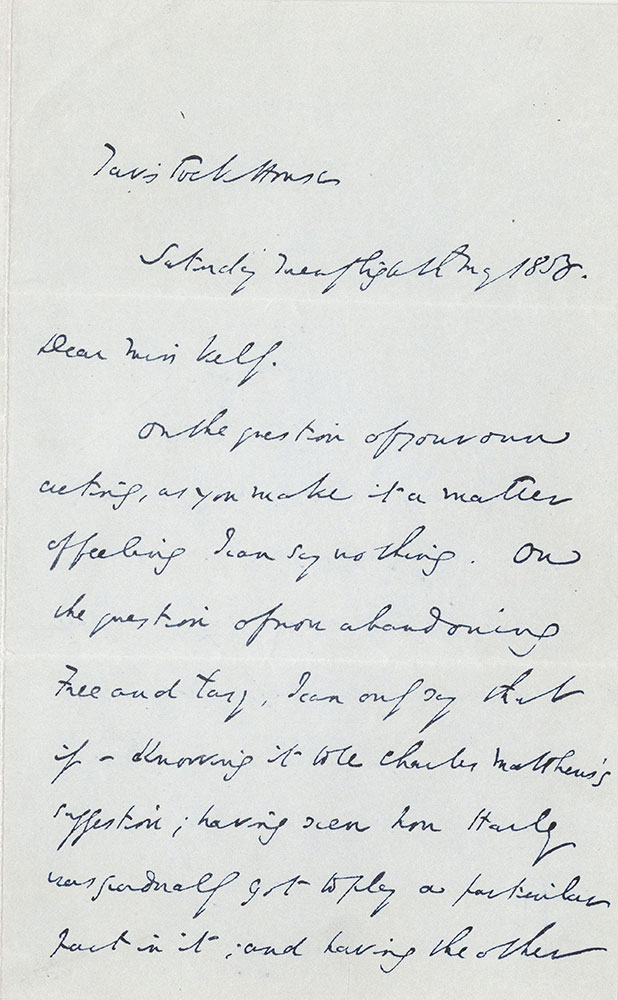 Tavistock House
Saturday Twenty Eighth May 1853.
Dear Miss Kelly.
On the question of your own
acting, as you make it a matter
of feeling I can say nothing. On
the question of now abandoning
Free and Easy, I can only say that
if - Knowing it to be Charles Matthews's
suggestion; having seen how Harley
was gradually got to play a particular
part in it; and having the other